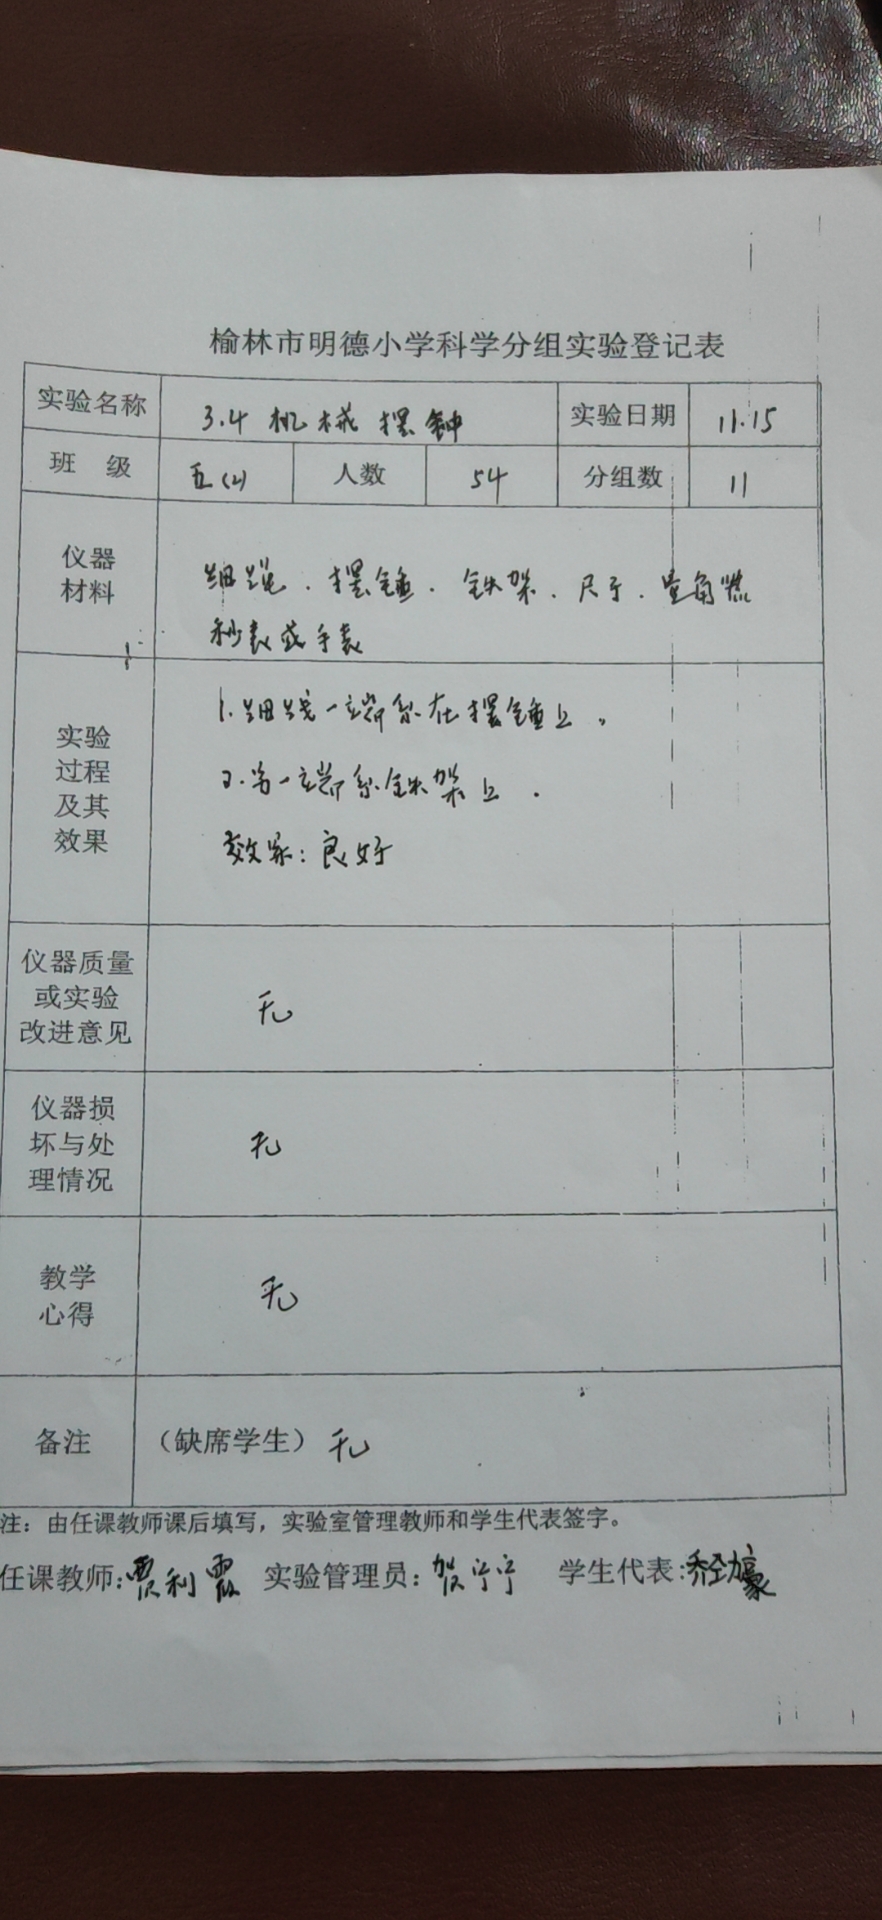 榆林市明德小学科学分组实验登记表
实验名称 3.4 机械摆钟 实验日期 11.15
班 级 五(2) 人数 54 分组数 11
仪器
材料
细绳、摆锤、铁架、尺子、量角器
秒表或手表
实验
过程
及其
效果
1.细线一端系在摆锤上。
2.另一端系铁架上.
效果:良好
仪器质量
或实验
改进意见
无
仪器损
坏与处
理情况
无
教学
心得
无
备注 (缺席学生) 无
注:由任课教师课后填写,实验室管理教师和学生代表签字。
任课教师:贾利霞 实验管理员:贺宁宁 学生代表: